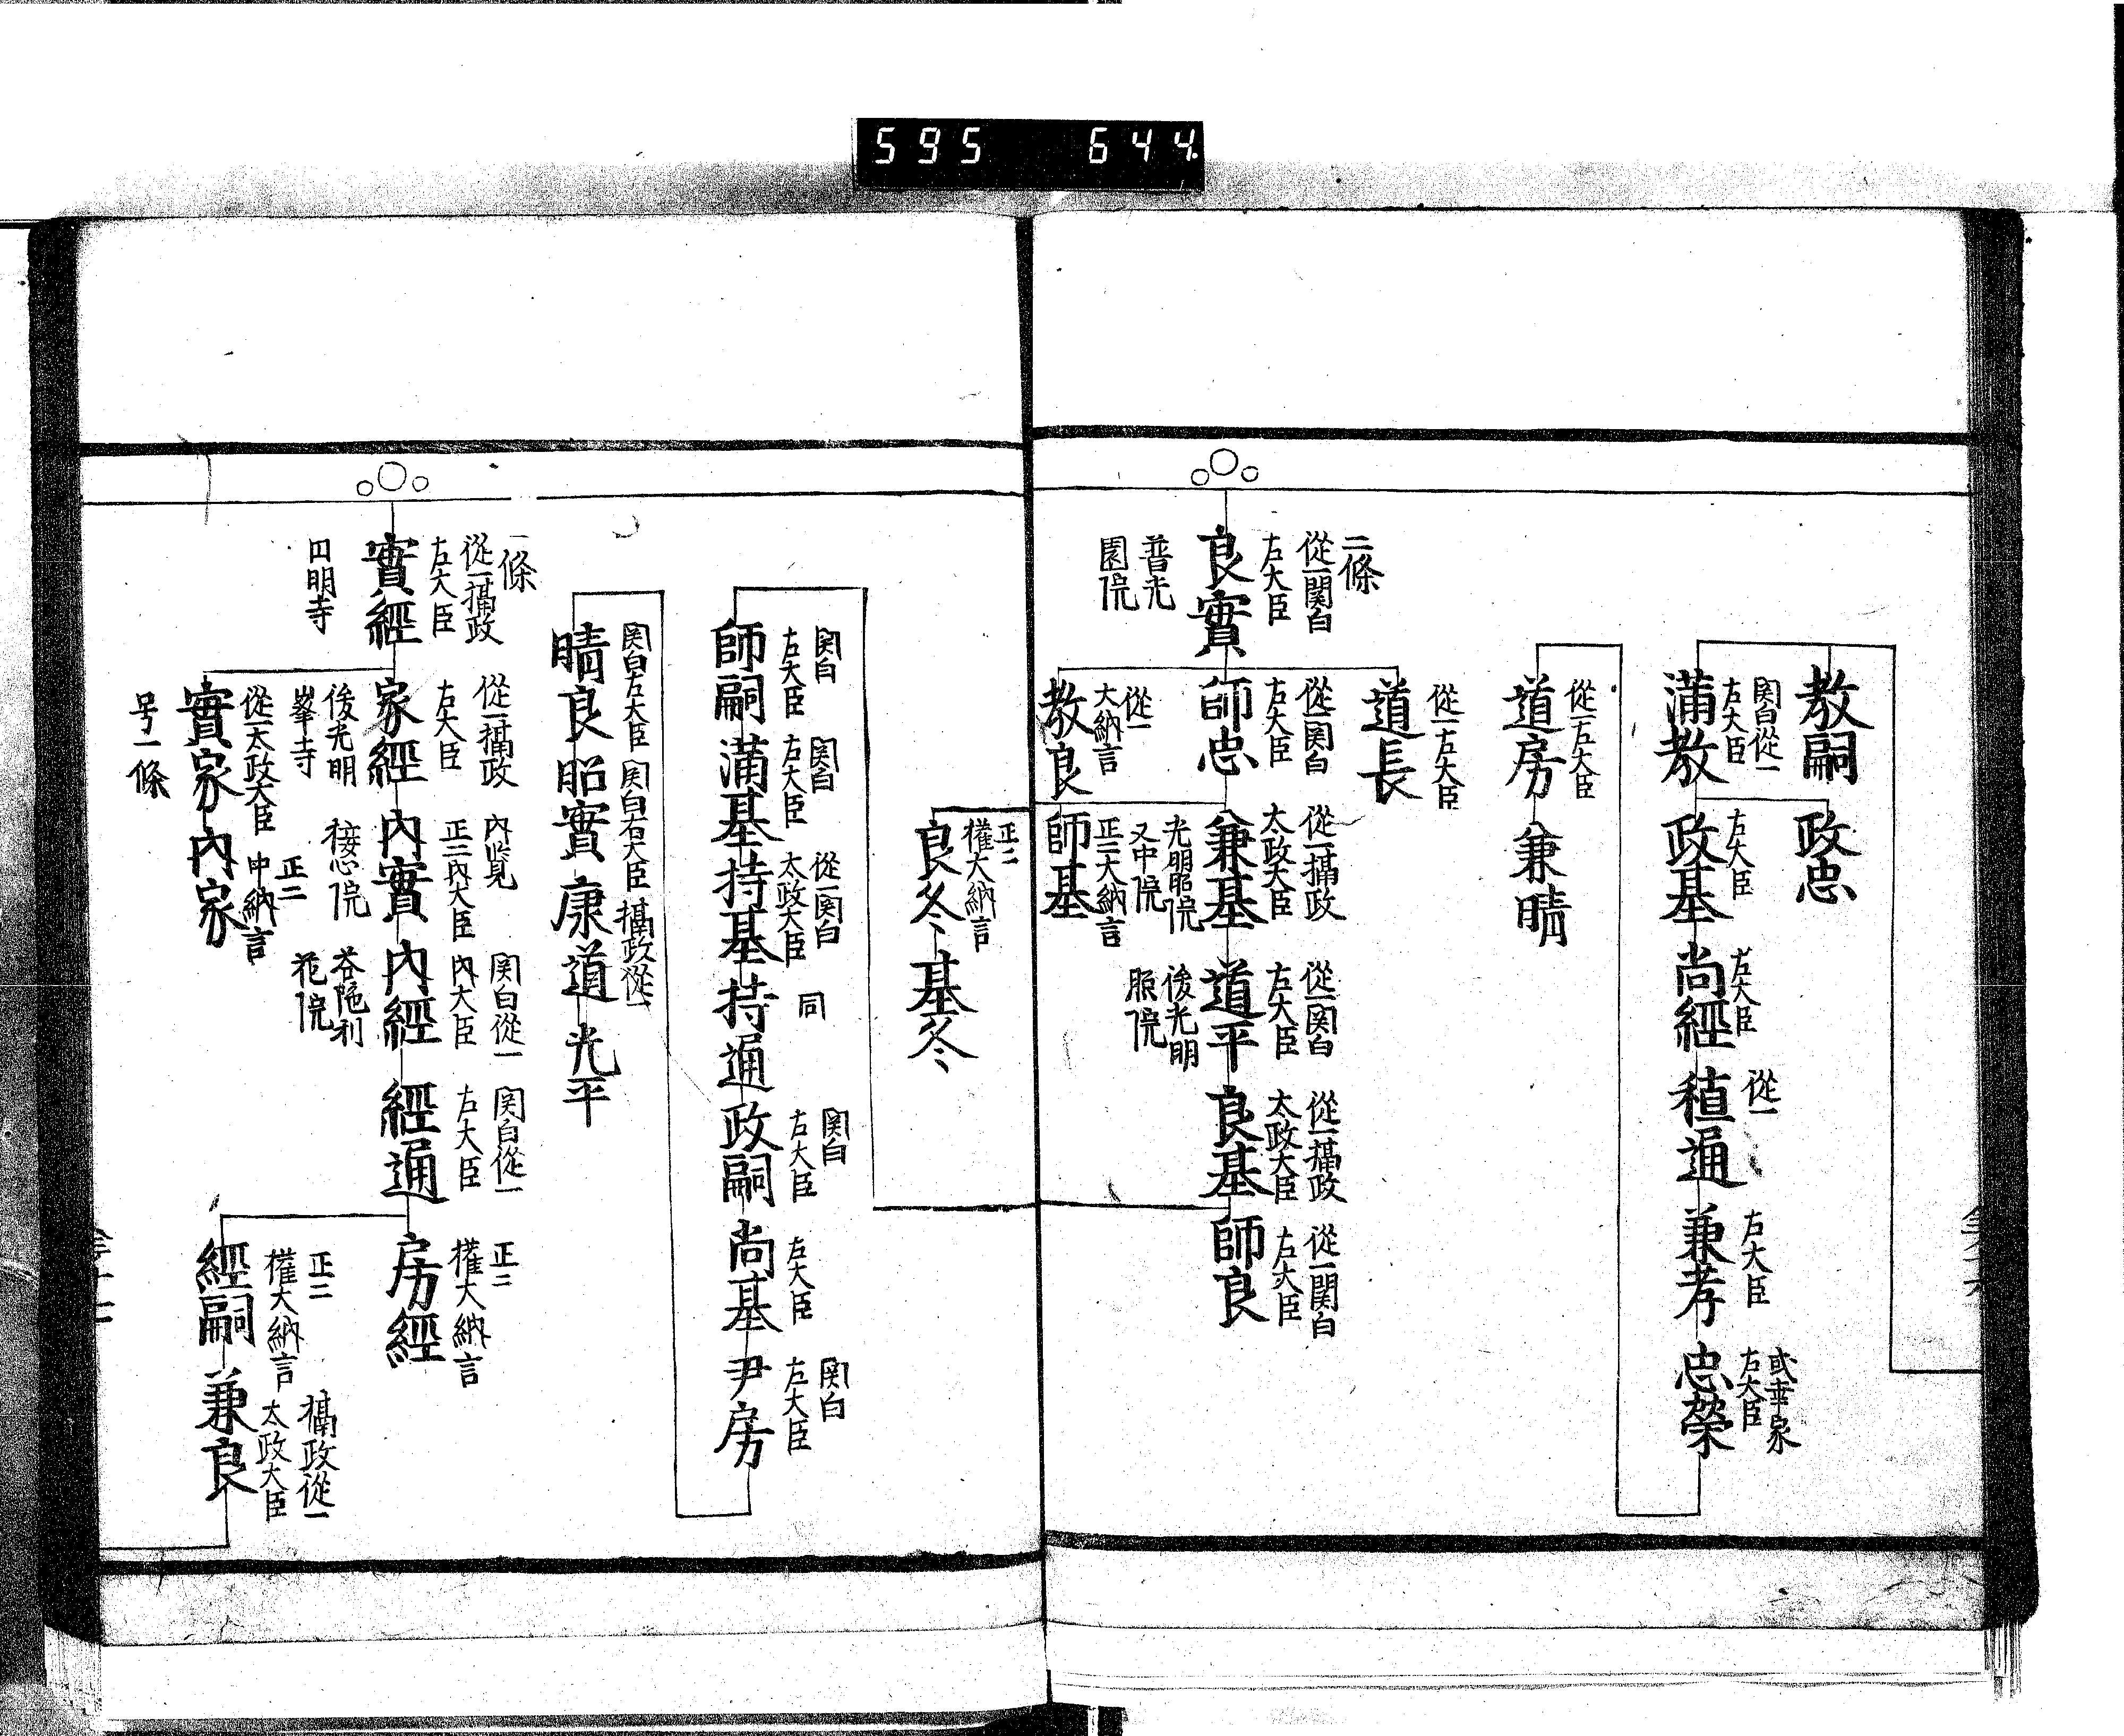 595 644.
教嗣
政忠
関白從一
左大臣
滿教
左大臣
政基
左大臣
尚經
從一
稙通
左大臣
兼孝
或幸家
左大臣
忠榮
從一左大臣
道房
兼晴
二條
從一関白
左大臣
良實
普光
園院
從一左大臣
道長
從一関白
左大臣
師忠
從一
大納言
教良
從一攝政
太政大臣
兼基
光明照院
又中院
正二大納言
師基
從一関白
左大臣
道平
後光明
照院
從一攝政
太政大臣
良基
從一関白
左大臣
師良
正二
權大納言
良冬
基冬
関白
左大臣
師嗣
関白
左大臣
滿基
從一関白
太政大臣
持基
同
持通
関白
左大臣
政嗣
左大臣
尚基
関白
左大臣
尹房
関白左大臣
晴良
関白右大臣
昭實
攝政從一
康道
光平
一條
從一攝政
左大臣
實經
円明寺
從一攝政
左大臣
家經
後光明
峯寺
內覧
正二內大臣
內實
棲心院
関白從一
內大臣
內經
芬陁利
花院
関白從一
左大臣
經通
正二
權大納言
房經
從一太政大臣
實家
号一條
正二
中納言
內家
正二
權大納言
經嗣
攝政從一
太政大臣
兼良